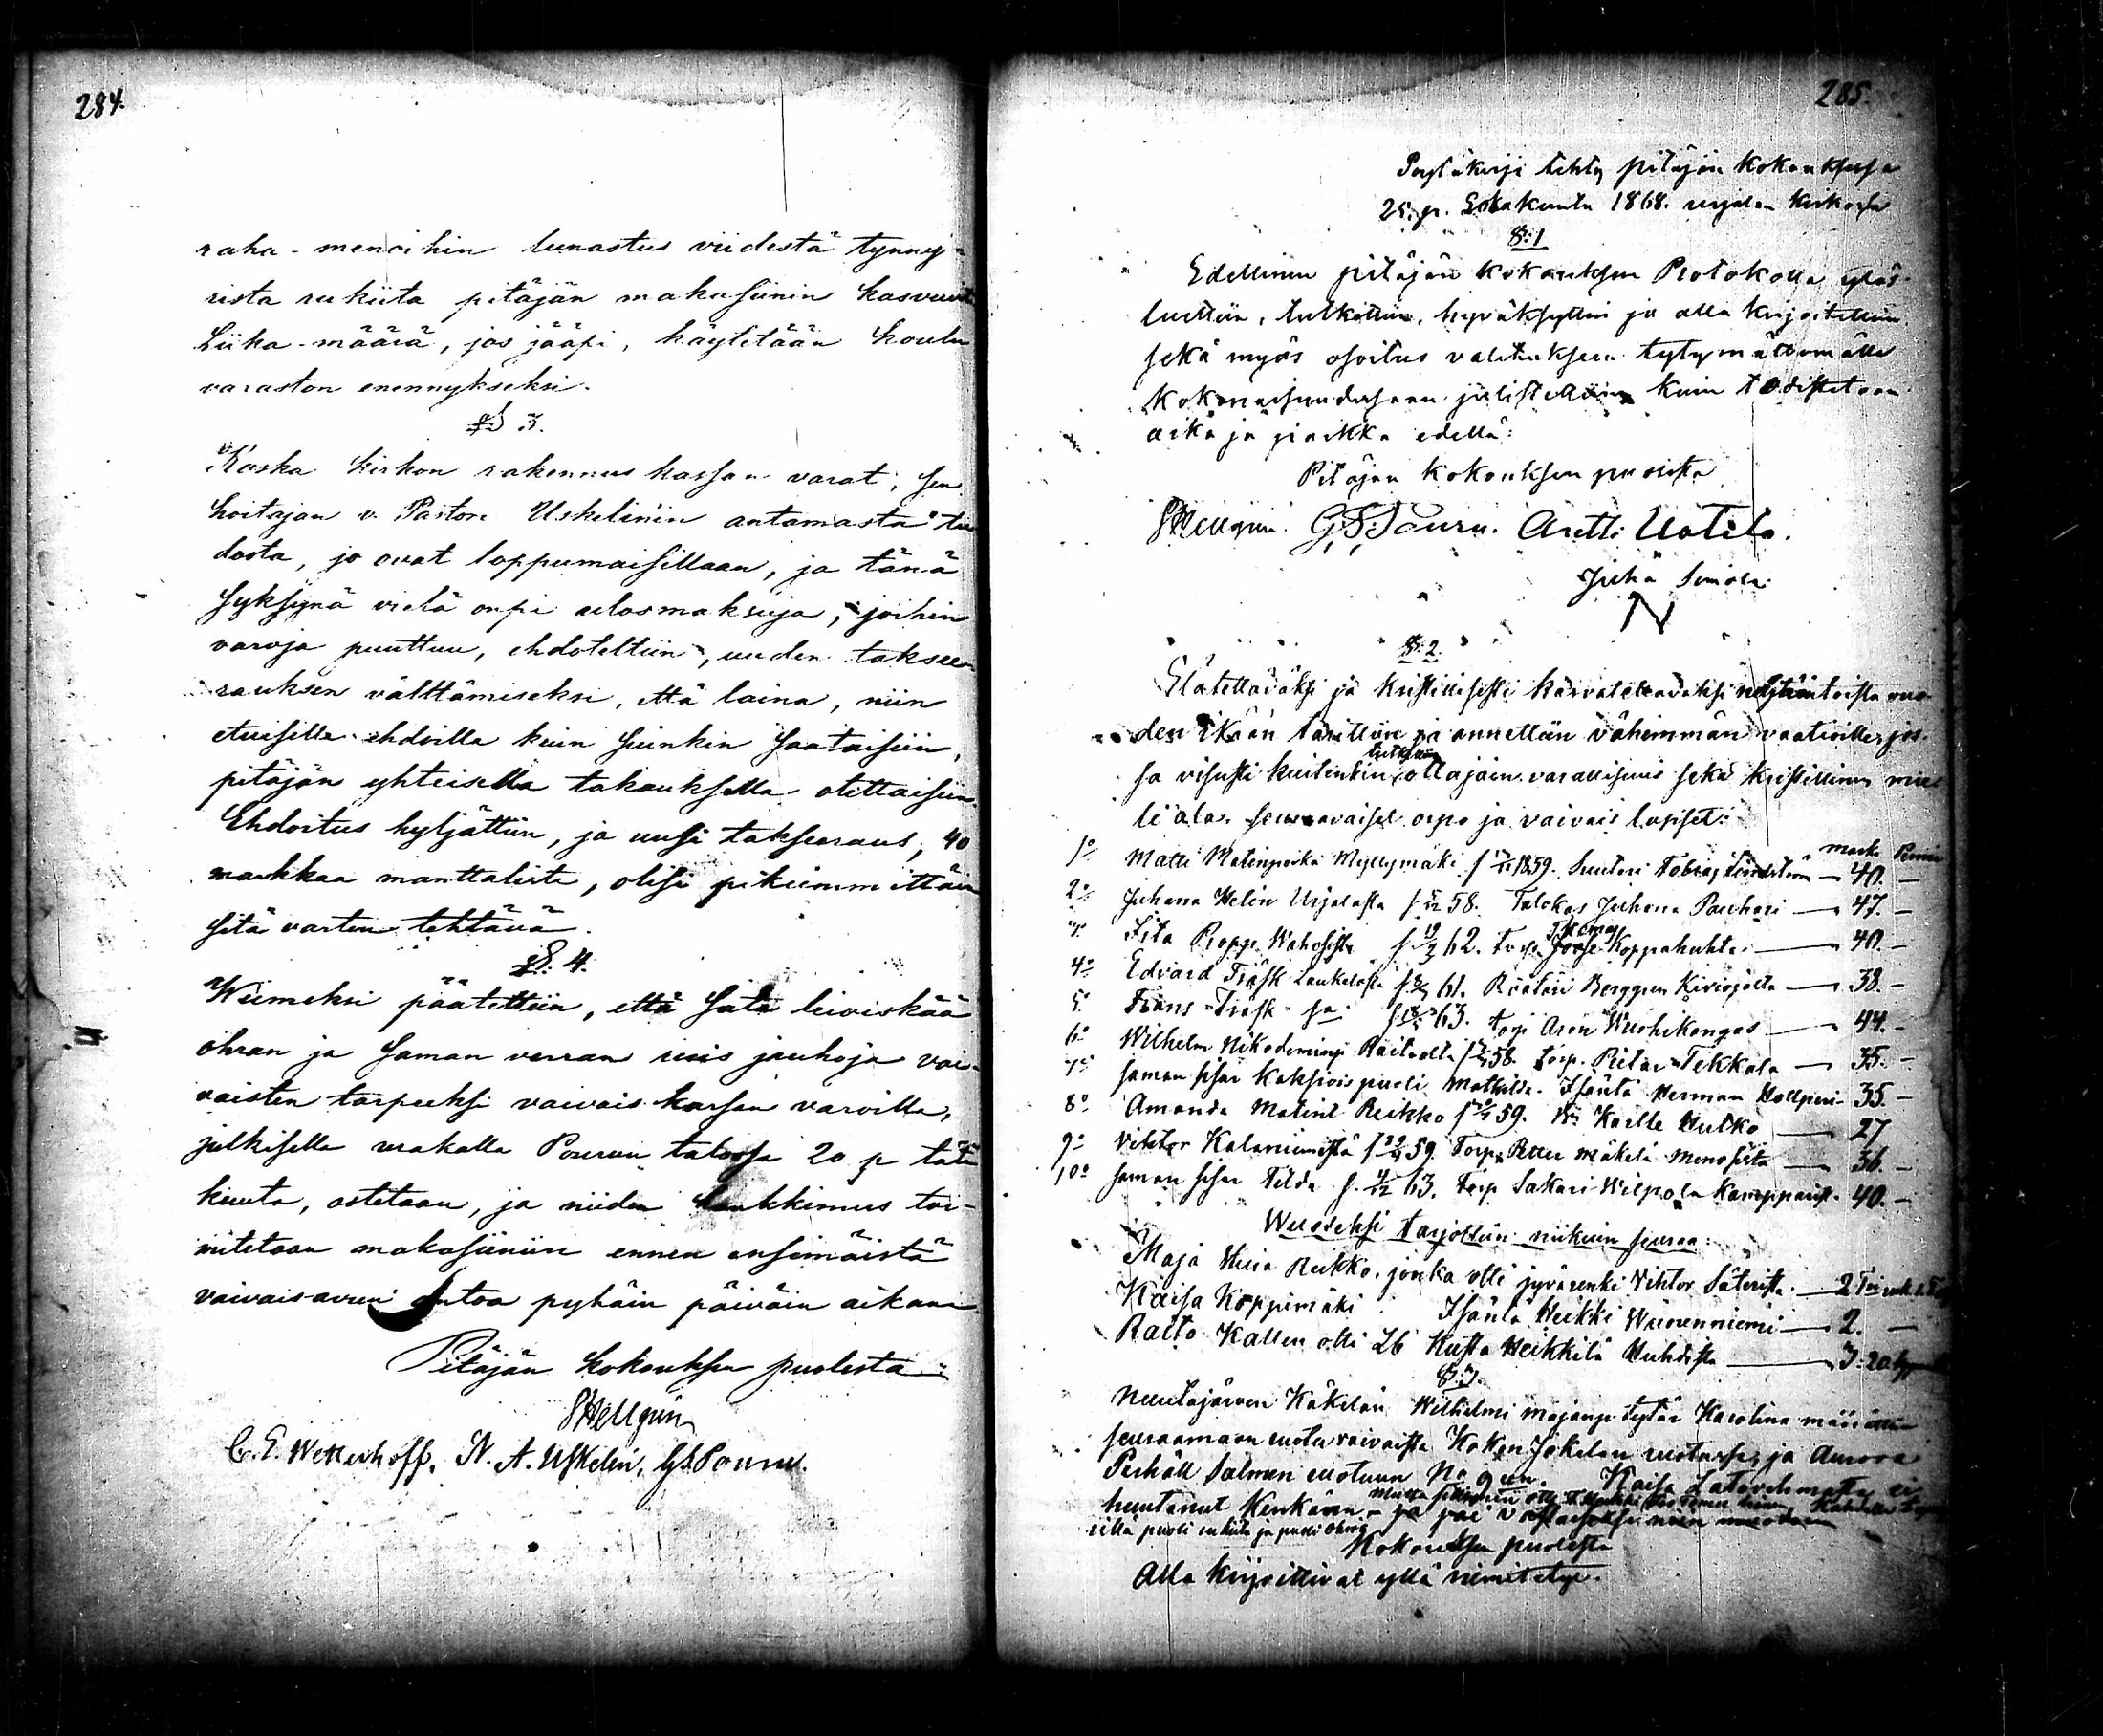 284.
raha-menoihin lunastus viidestä tynny-
ristä rukiita pitäjän makasiinin kasvuust
Liika-määrä, jos jääpi, käytetään koulu
varaston enennykseksi.
§ 3.
Koska kirkon rakennus kassan varat, sen
hoitajan v. Pastori Uskelinin antamasta tie
dosta, jo ovat loppumaisillaan, ja tänä
syksynä vielä onpi ulosmaksuja, joihin
varoja puuttuu, ehdoteltiin, uuden taksee
rauksen välttämiseksi, että laina, niin
etuisilla ehdoilla kuin suinkin saataisiin,
pitäjän yhteisellä takauksella otettaisiin
Ehdoitus hyljättiin, ja uusi takseeraus, 40
markkaa manttalista, olisi pikeimmittäin
sitä varten tehtävä.
§. 4.
Wiimeksi päätettiin, että sata leiviskää
ohran ja saman verran ruis jauhoja vai-
vaisten tarpeeksi vaivais kassan varoilla,
julkisella urakalla Pourun talossa 20 p tätä
kuuta, ostetaan, ja niiden hankkimus toi-
mitetaan makasiiniin ennen ensimäistä
vaivais-avun antoa pyhäin päiväin aikana
Pitäjän kokouksen puolesta
SHellgrén
C. E. Wetterhoff, N. A. Uskelin, GS. Pouru.
285.
Pöytäkirja tehty pitäjän kokouksessa
25. p. Lokakuuta 1868. urjalan kirkossa
§: 1
Edellinen pitäjän kokouksen Protokolla ylös
luettiin, tutkittiin, hyväksyttiin ja alla kirjoitettiin
sekä myös osoitus valitukseen tytymättömälle
kokonaisuudessaan julistettiin kuin todistetaan
aika ja paikka edellä:
Pitäjän kokouksen puolesta
SHellgrén. G. S. Pouru. Antti Uotila.
Juha Simola
§. 2.
Elätettäväksi ja kristillisesti kasvatettavaksi neljääntoista vuo
den ikään tarittiin ja annettiin vähemmän vaativille, jos
tutkittiin
sa visusti kuitenkin ottajain varallisuus sekä kristillinen mie
liala. seuraavaiset orpo ja vaivais lapset:
mark. Penniä
1o Matti Matinpoika Myllymäki s 1859. Suutari Tobias Lindström — 40. —
2o Juhana Helin Urjalasta s 58. Talokas Juhana Pauhari — 47. —
Thomas
Fita Propp. Wahosista s 19/3 62. Torp Joose Koppahuhta — 40. —
4o Edvard Träsk Laukelasta s 61. Räätäri Berggren Kivisojalta — 38. —
5o Frans Träsk sa s 63. Torp Aron Wuohikangas — 44. —
6o Wilhelm Nikodeminp Raitoolta s 58. Torp. Pietar Tekkala — 35. —
7o saman sisar kaksoispuoli Mathilda. Isäntä Herman Hollperi 35. —
8o Amanda Matint Reikko s 59. Kalle Hutko — 27
9o Viktor Kalaniemistä s 59. Torp. Petter Mäkelä Menosista — 36. —
10o saman sisar Tilda s. 63. Torp Sakari Wilpola Kamppärist. 40. —
Wuodeksi tarjottiin niikuin seuraa:
Maja Stiina Reikko, jonka otti jyvärenki Viktor Säteristä — 2
Kaisa Koppimäki Isäntä Heikki Wuorenniemi — 2. —
Raito Kallen otti Kusta Heikkilä Huhdista — 3. 20
§. 3.
Nuutajärven Käkelän Wilhelmi Majanp tytär Karolina määrättiin
seuraamaan ruotu vaivaista Hoken Jokelan ruotussa, ja Aurora
Perhall Salmen ruotuun No 9 een. Kaisa ei
huutanut Kenkään
sillä puoli rukiita ja puoli ohria
Kokouksen puolesta
Alla kirjoittivat yllä nimitetyt.